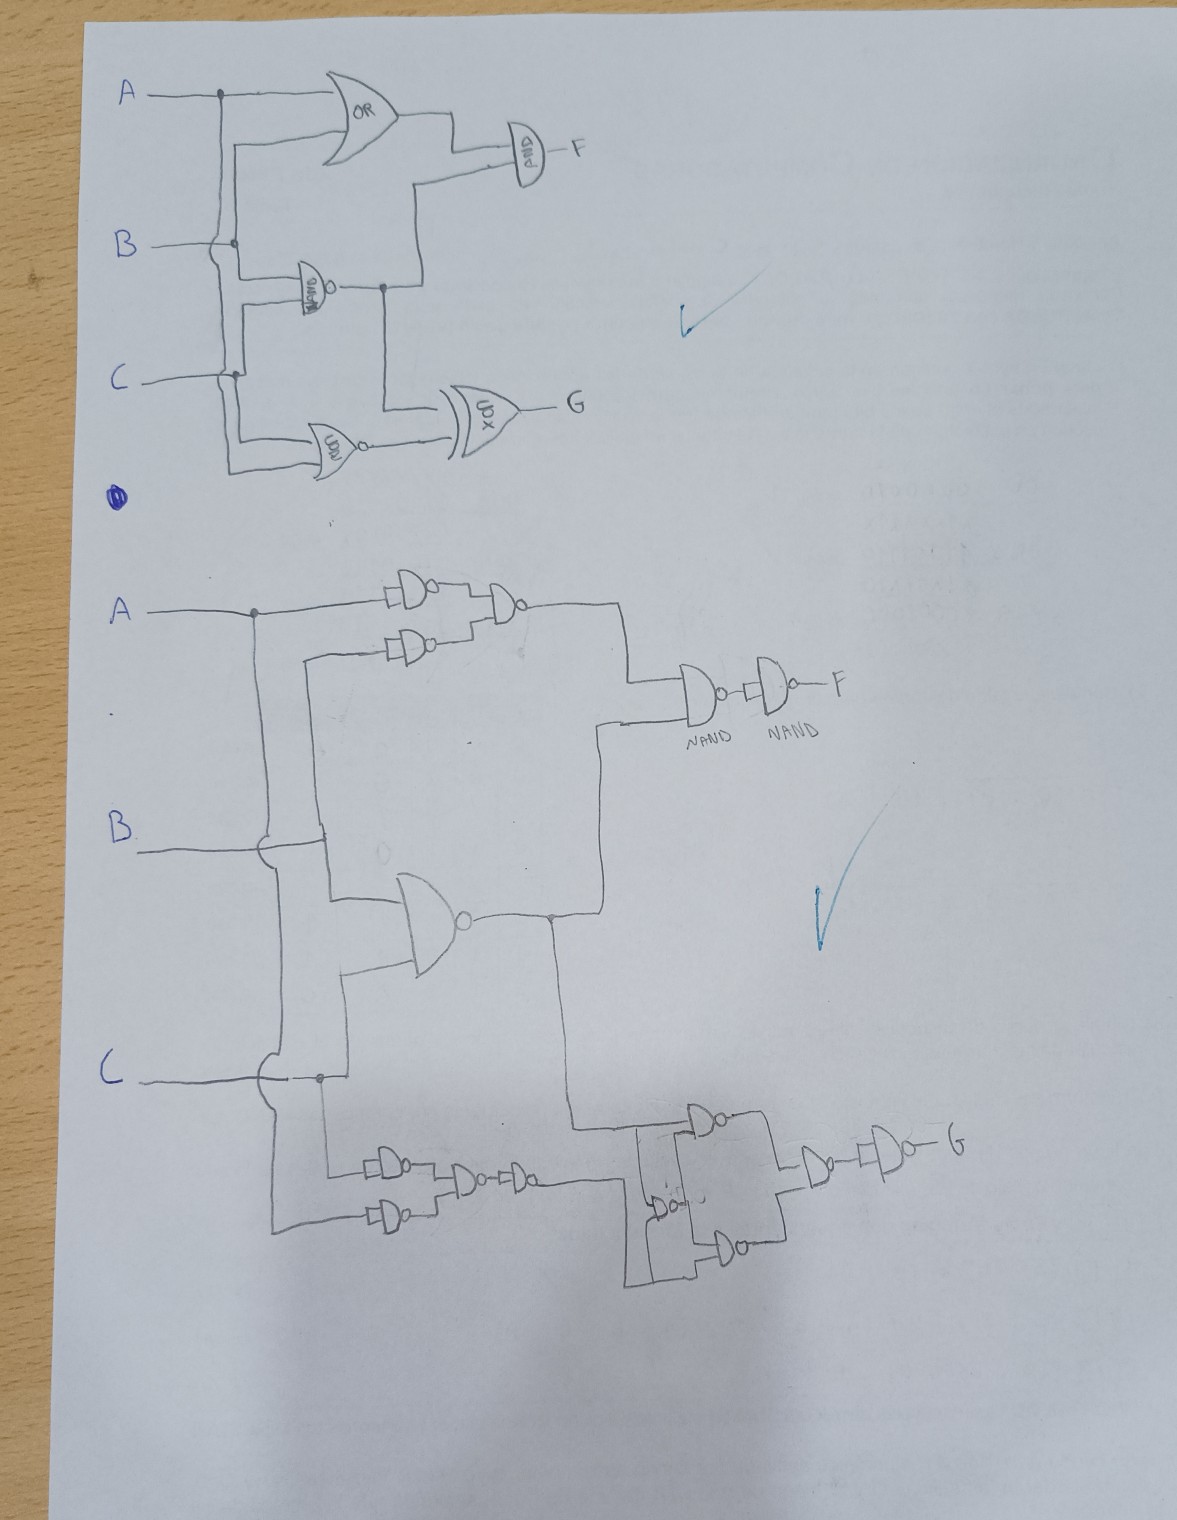 A
OR
AND
F
B
NAND
C
XOR
G
NOR
A
F
NAND NAND
B
C
G